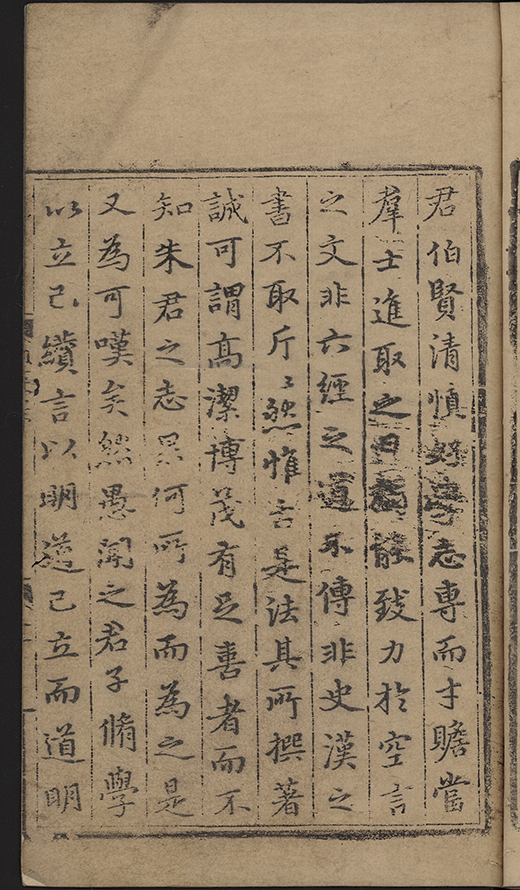 君伯賢清慎好學志專而才贍當
羣士進取之日獨能致力於空言
之文非六經之道不傳非史漢之
書不取斤〻然惟古是法其所撰著
誠可謂高潔博茂有足喜者而不
知朱君之志果何所為而為之是
又為可嘆矣然愚聞之君子脩學
以立己續言以明道己立而道明